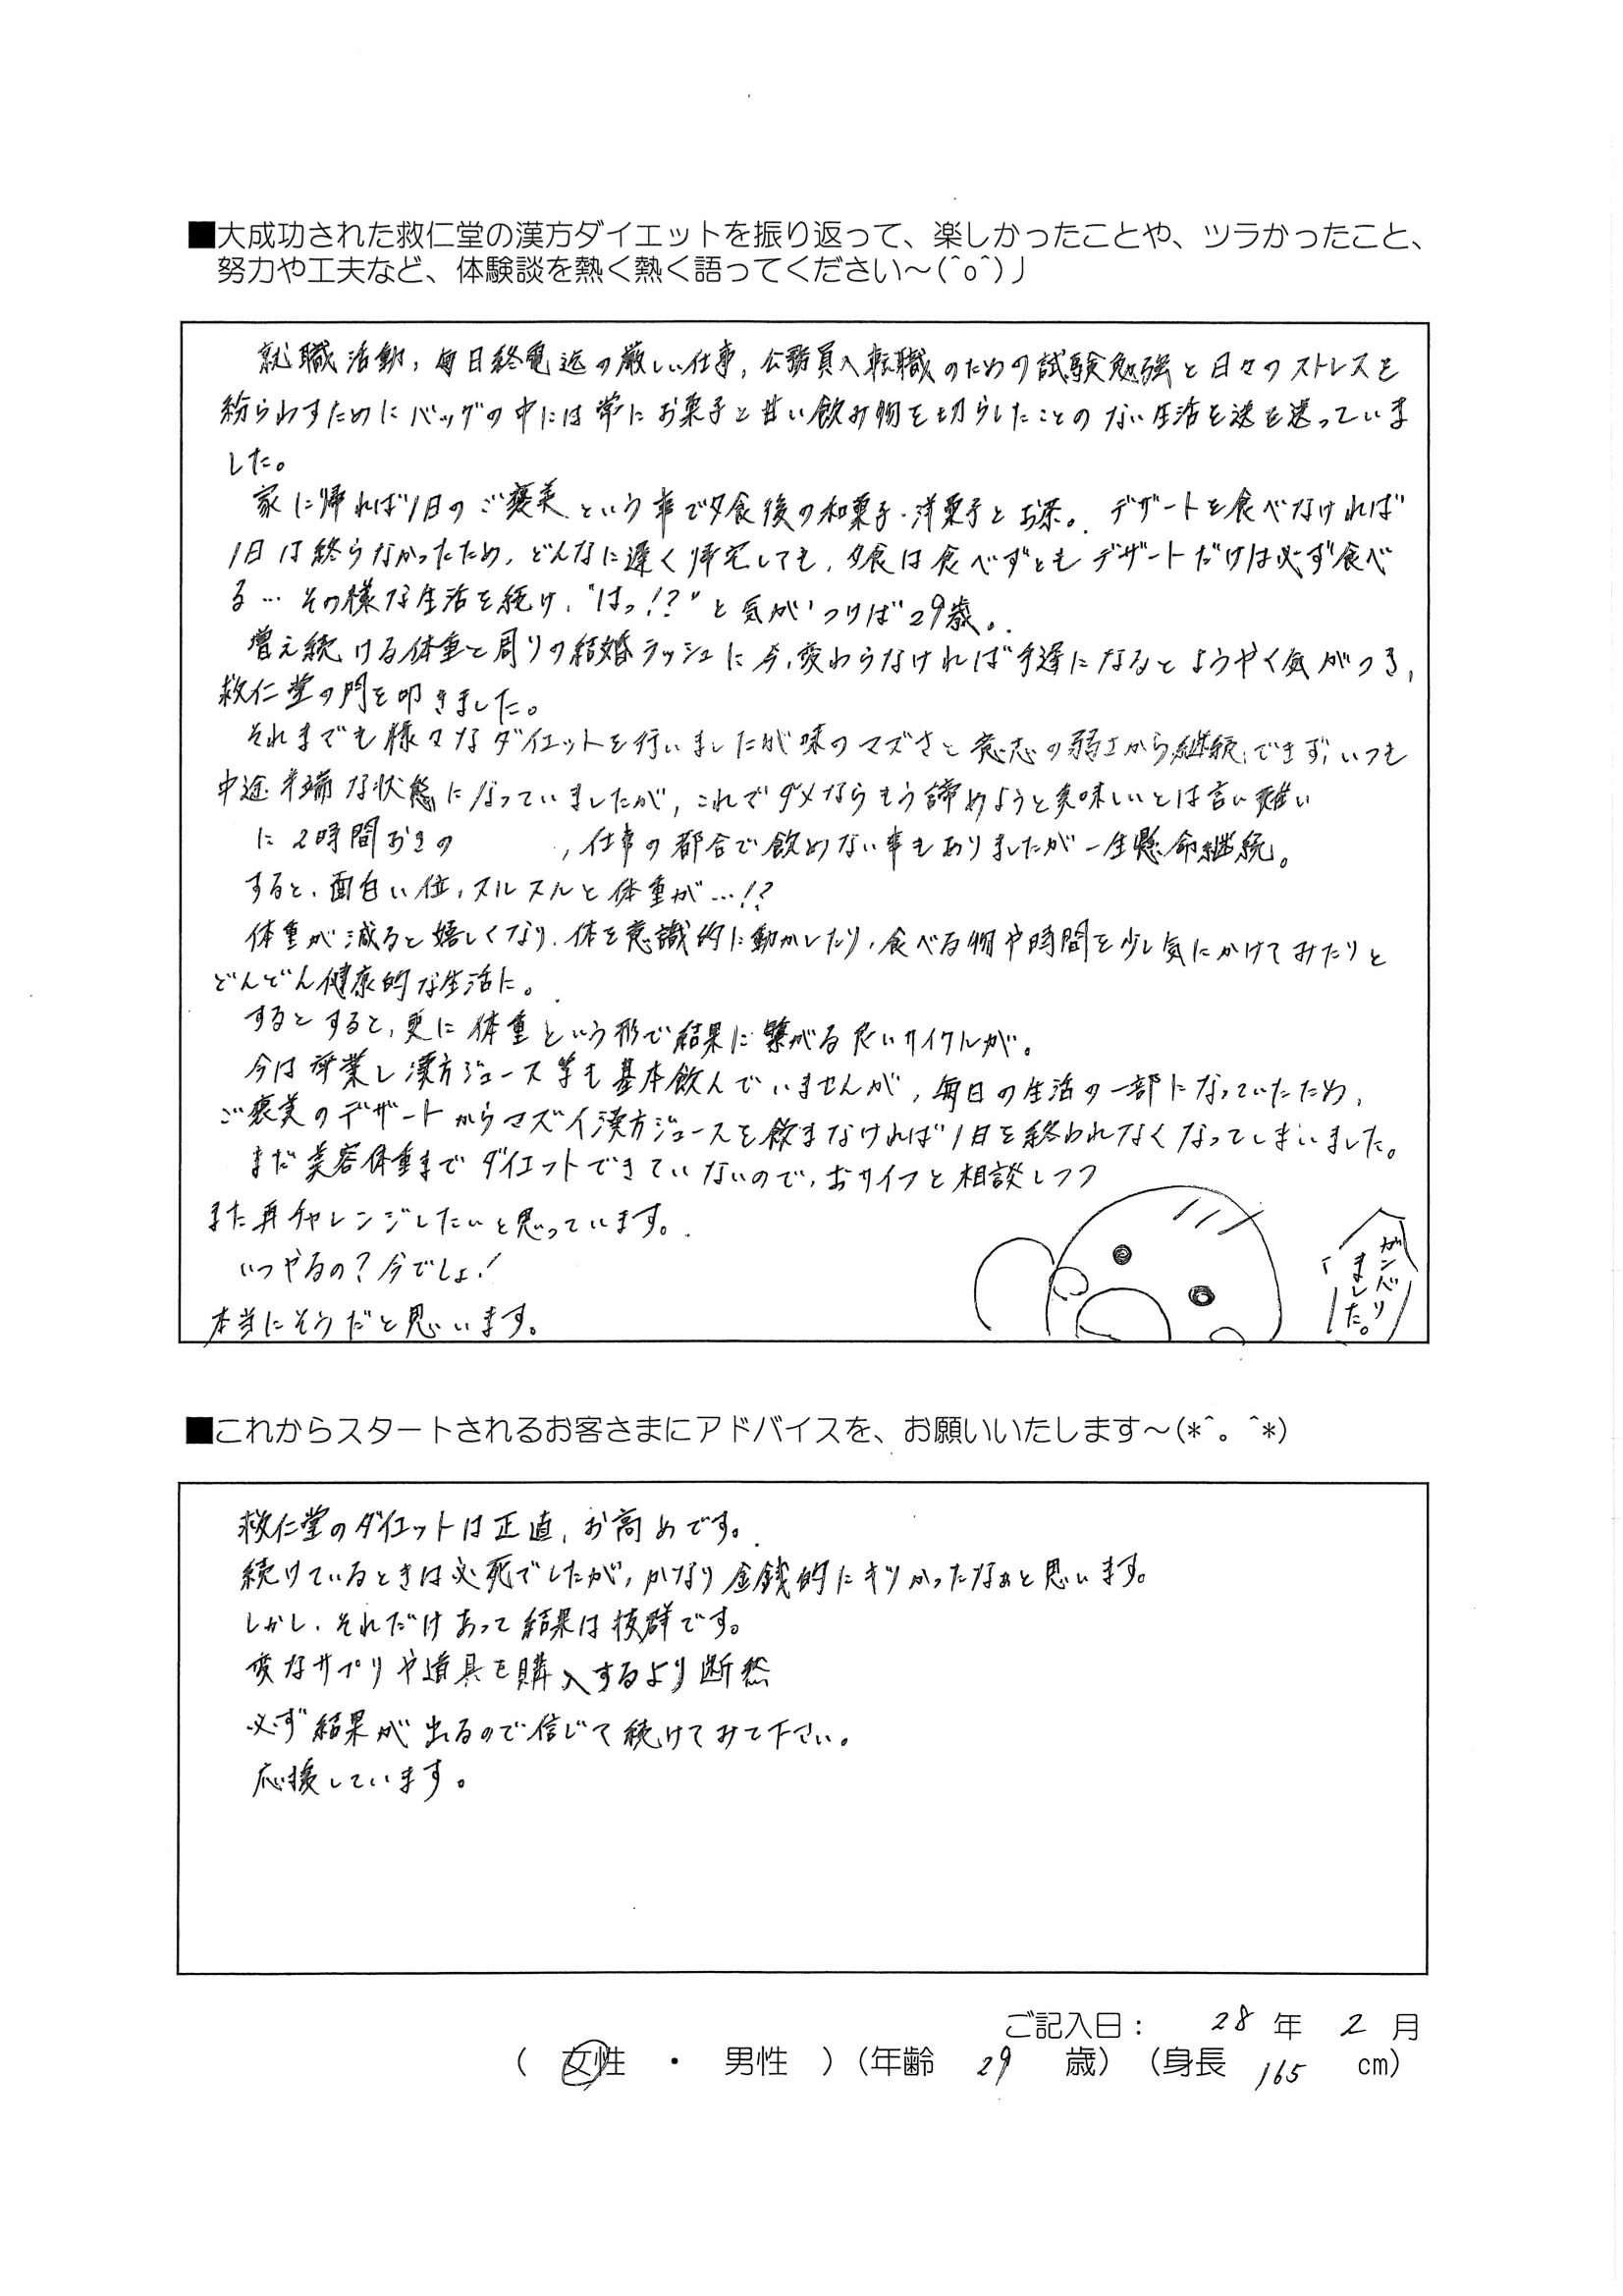 ■大成功された救仁堂の漢方ダイエットを振り返って、楽しかったことや、ツラかったこと、
努力や工夫など、体験談を熱く熱く語ってください～(^o^)丿
就職活動、毎日終電迄の厳しい仕事、公務員へ転職のための試験勉強と日々のストレスを
紛らわすためにバッグの中には常にお菓子と甘い飲み物を切らしたことのない生活を送を送っていま
した。
家に帰れば1日のご褒美という事で夕食後の和菓子・洋菓子とお茶。デザートを食べなければ
1日は終らなかったため、どんなに遅く帰宅しても、夕食は食べずともデザートだけは必ず食べ
る…その様な生活を続け、"はっ!?"と気がつけば29歳。
増え続ける体重と周りの結婚ラッシュに今、変わらなければ手遅になるとようやく気がつき、
救仁堂の門を叩きました。
それまでも様々なダイエットを行いましたが味のマズさと意志の弱さから継続できず、いつも
中途半端な状態になっていましたが、これでダメならもう諦めようと美味しいとは言い難い
に2時間おきの 、仕事の都合で飲めない事もありましたが一生懸命継続。
すると、面白い位、スルスルと体重が…!?
体重が減ると嬉しくなり、体を意識的に動かしたり、食べる物や時間を少し気にかけてみたりと
どんどん健康的な生活に。
するとすると、更に体重という形で結果に繋がる良いサイクルが。
今は卒業し漢方ジュース等も基本飲んでいませんが、毎日の生活の一部になっていたため、
ご褒美のデザートからマズイ漢方ジュースを飲まなければ1日を終われなくなってしまいました。
まだ美容体重までダイエットできていないので、おサイフと相談しつつ
また再チャレンジしたいと思っています。
いつやるの？今でしょ！
本当にそうだと思います。
ガンバリ
ました。
■これからスタートされるお客さまにアドバイスを、お願いいたします～(*^。^*)
救仁堂のダイエットは正直、お高めです。
続けているときは必死でしたが、かなり金銭的にキツかったなぁと思います。
しかし、それだけあって結果は抜群です。
変なサプリや道具を購入するより断然
必ず結果が出るので信じて続けてみて下さい。
応援しています。
ご記入日： 28 年 2 月
（ 女性 ・ 男性 ）（年齢 29 歳）（身長 165 cm）